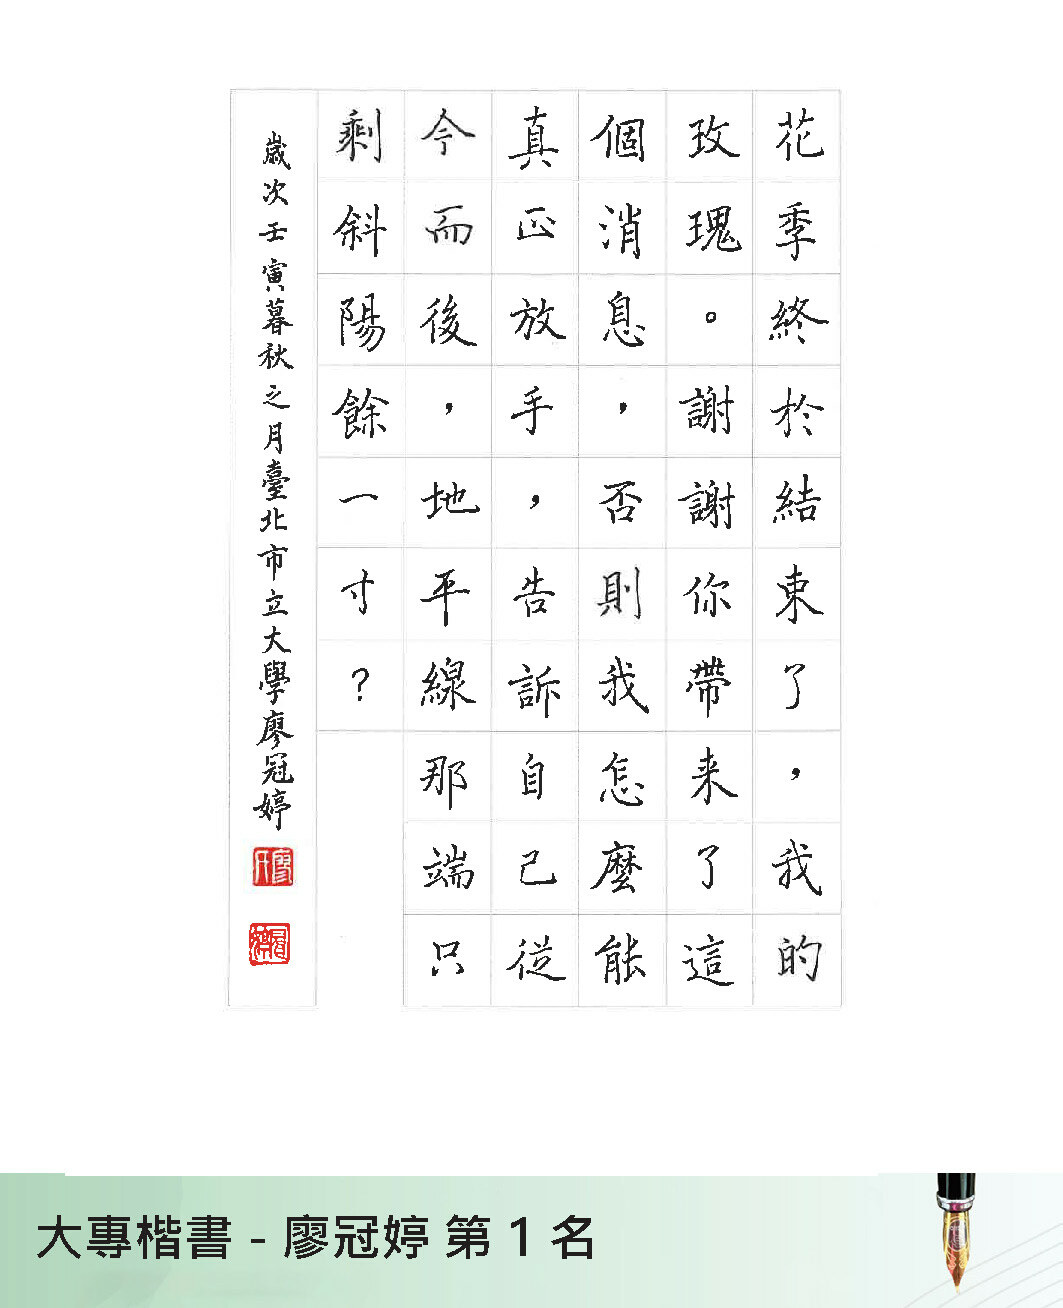 花季終於結束了，我的
玫瑰。謝謝你帶来了這
個消息，否則我怎麼能
真正放手，告訴自己從
今而後，地平線那端只
剩斜陽餘一寸？
歲次壬寅暮秋之月臺北市立大學廖冠婷
大專楷書 - 廖冠婷 第 1 名